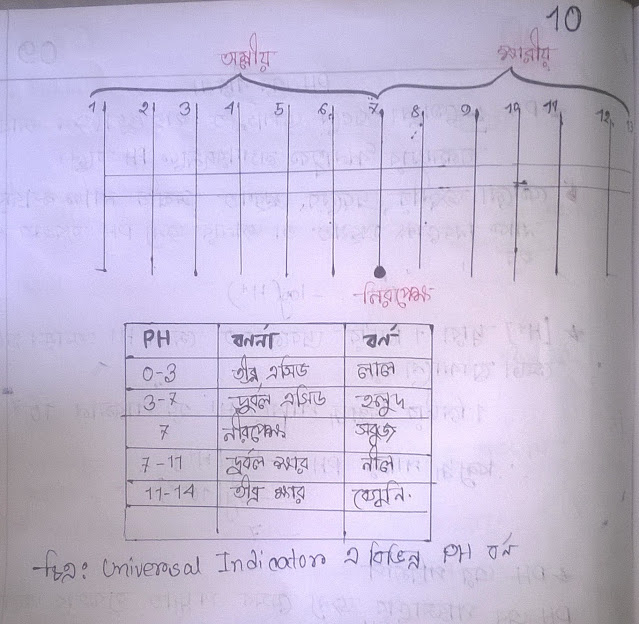 10
অম্লীয় ক্ষারীয়
1 2 3 4 5 6 7 8 9 10 11 12
নিরপেক্ষ
PH বর্ননা বর্ন
0-3 তীব্র এসিড লাল
3-7 দুর্বল এসিড হলুদ
7 নীরপেক্ষ সবুজ
7-11 দুর্বল ক্ষার নীল
11-14 তীব্র ক্ষার বেগুনি
চিত্র: Universal Indicator এ বিভিন্ন PH বর্ন